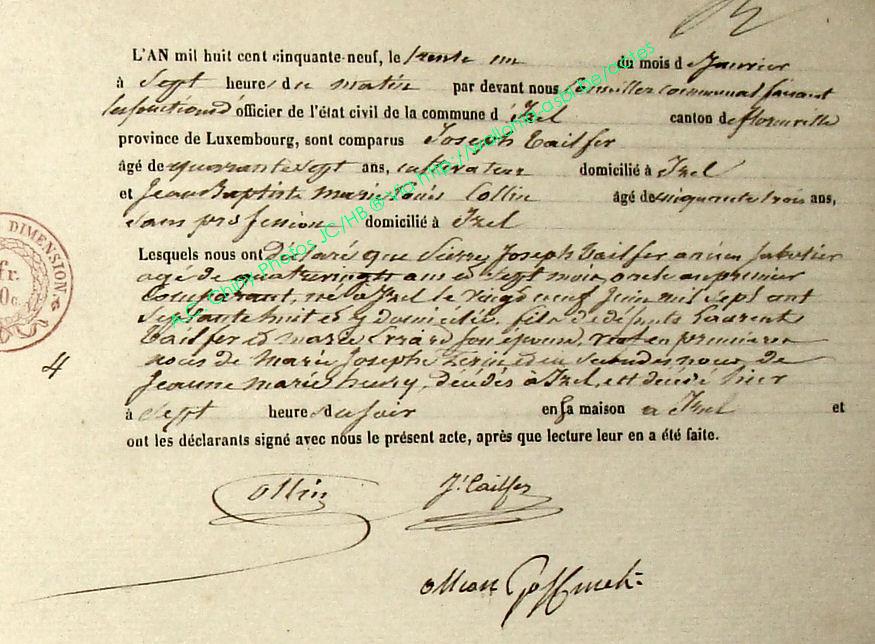 L'AN mil huit cent cinquante-neuf, le trente un du mois de Janvier
à sept heures du matin par devant nous Conseiller communal faisant
les fonctions d'officier de l'état civil de la commune d'Izel canton de florenville
province de Luxembourg, sont comparus Joseph Tailfer
âgé de quarante sept ans, cultivateur domicilié à Izel
et Jean Baptiste Marie Louis Collin âgé de cinquante trois ans,
sans profession domicilié à Izel
Lesquels nous ont Déclaré que Pierre Joseph Tailfer ancien sabotier
agé de quatrevingts ans et sept mois, oncle au premier
comparant, né à Izel le vingt neuf Juin mil sept cent
septante huit et y domicilié, fils de défunts Laurent
Tailfer et marie Errard son épouse, veuf en premières
noces de Marie Joseph et en secondes noces de
Jeanne marie henry, décédés à Izel, est décédé hier
à sept heures du soir en sa maison à Izel et
ont les déclarants signé avec nous le présent acte, après que lecture leur en a été faite.
Collin J. Tailfer
Goffinet
4
DIMENSION.
fr.
0c.
AC Chiny Photos JC/HB ® via http://wallonia-asbl.be/actes